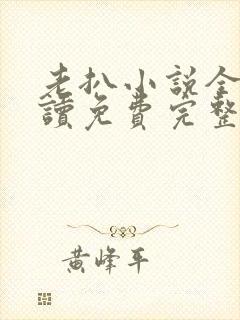 老扒小说全
讀免費完整
黄峰平